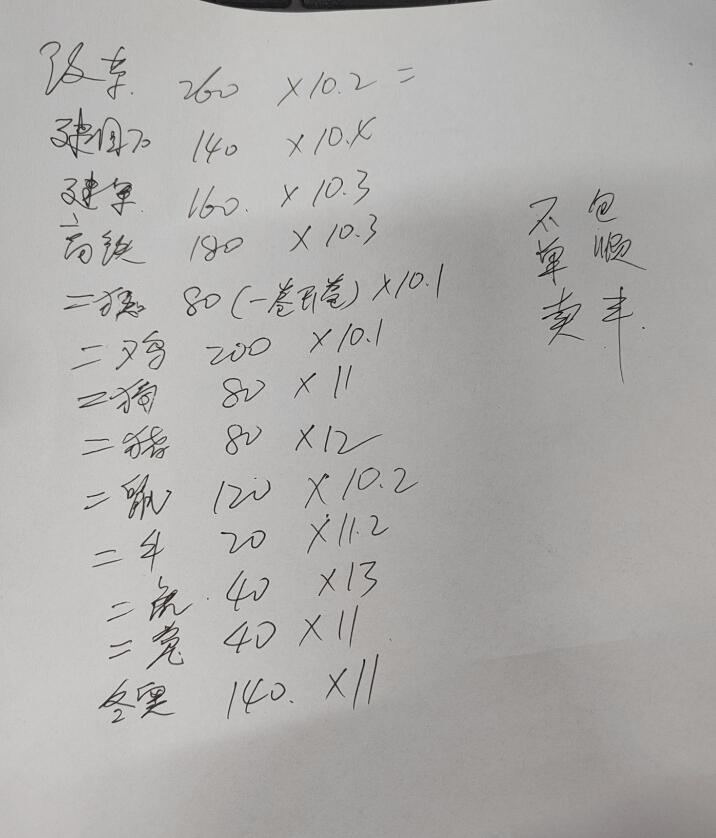 改革. 260 ×10.2 =
建国70 140 ×10.4
建军. 160. ×10.3
高铁 180 ×10.3
二猴 80 (一卷开卷) ×10.1
二鸡 200 ×10.1
二狗 80 ×11
二猪 80 ×12
二鼠 120 ×10.2
二牛 20 ×11.2
二虎 40 ×13
二兔 40 ×11
冬奥 140. ×11
不包
单顺
卖丰.